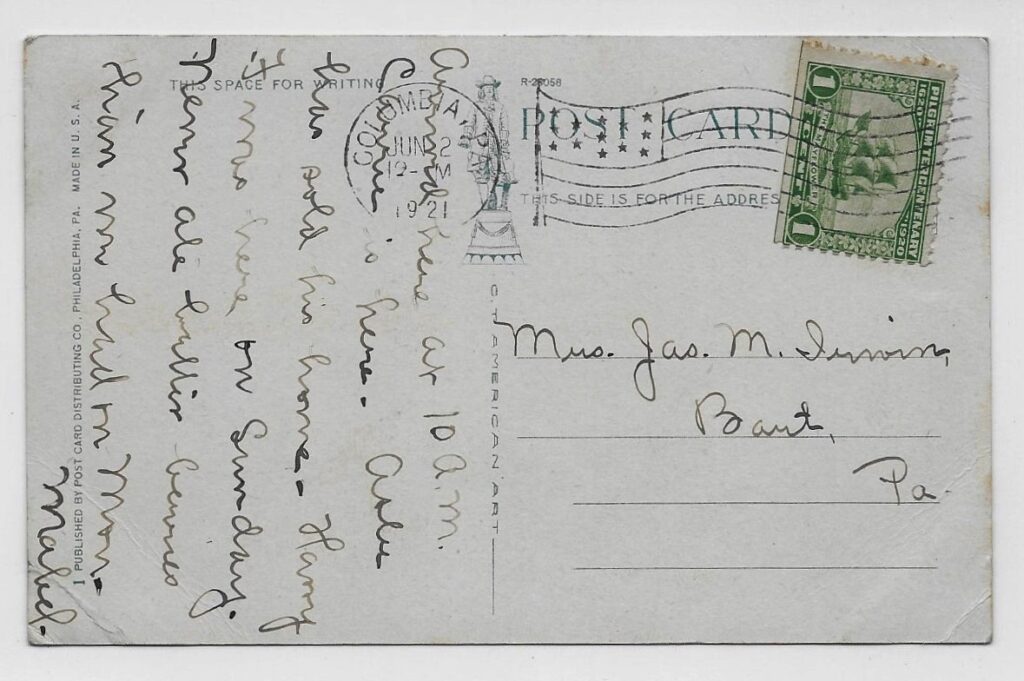 THIS SPACE FOR WRITING
R-26058
POST CARD
THIS SIDE IS FOR THE ADDRES
COLUMBIA PA.
JUN 2
12- M
1921
PILGRIM TERCENTENARY
1620 1920
THE MAYFLOWER
1 CENT 1
Arrived here at 10 A.M.
is here -
has sold his home - Harry
F was here on Sunday.
Never ate better berries
than we had on Mon-
Mabel.
Mrs. Jas. M. Irwin,
Pa.
C.T. AMERICAN ART
1 PUBLISHED BY POST CARD DISTRIBUTING CO., PHILADELPHIA, PA. MADE IN U. S. A.